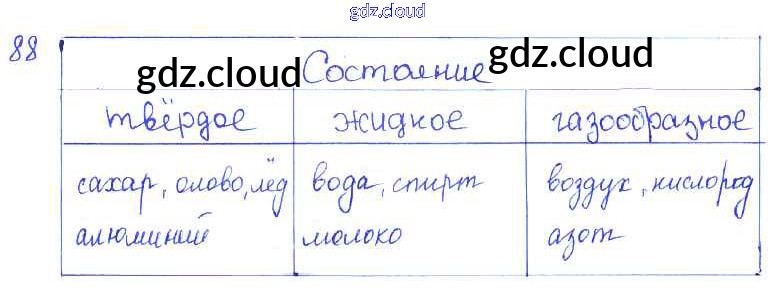 gdz.cloud
88
gdz.cloud Состояние gdz.cloud
твёрдое жидкое газообразное
сахар, олово, лёд вода, спирт воздух, кислород
алюминий молоко азот